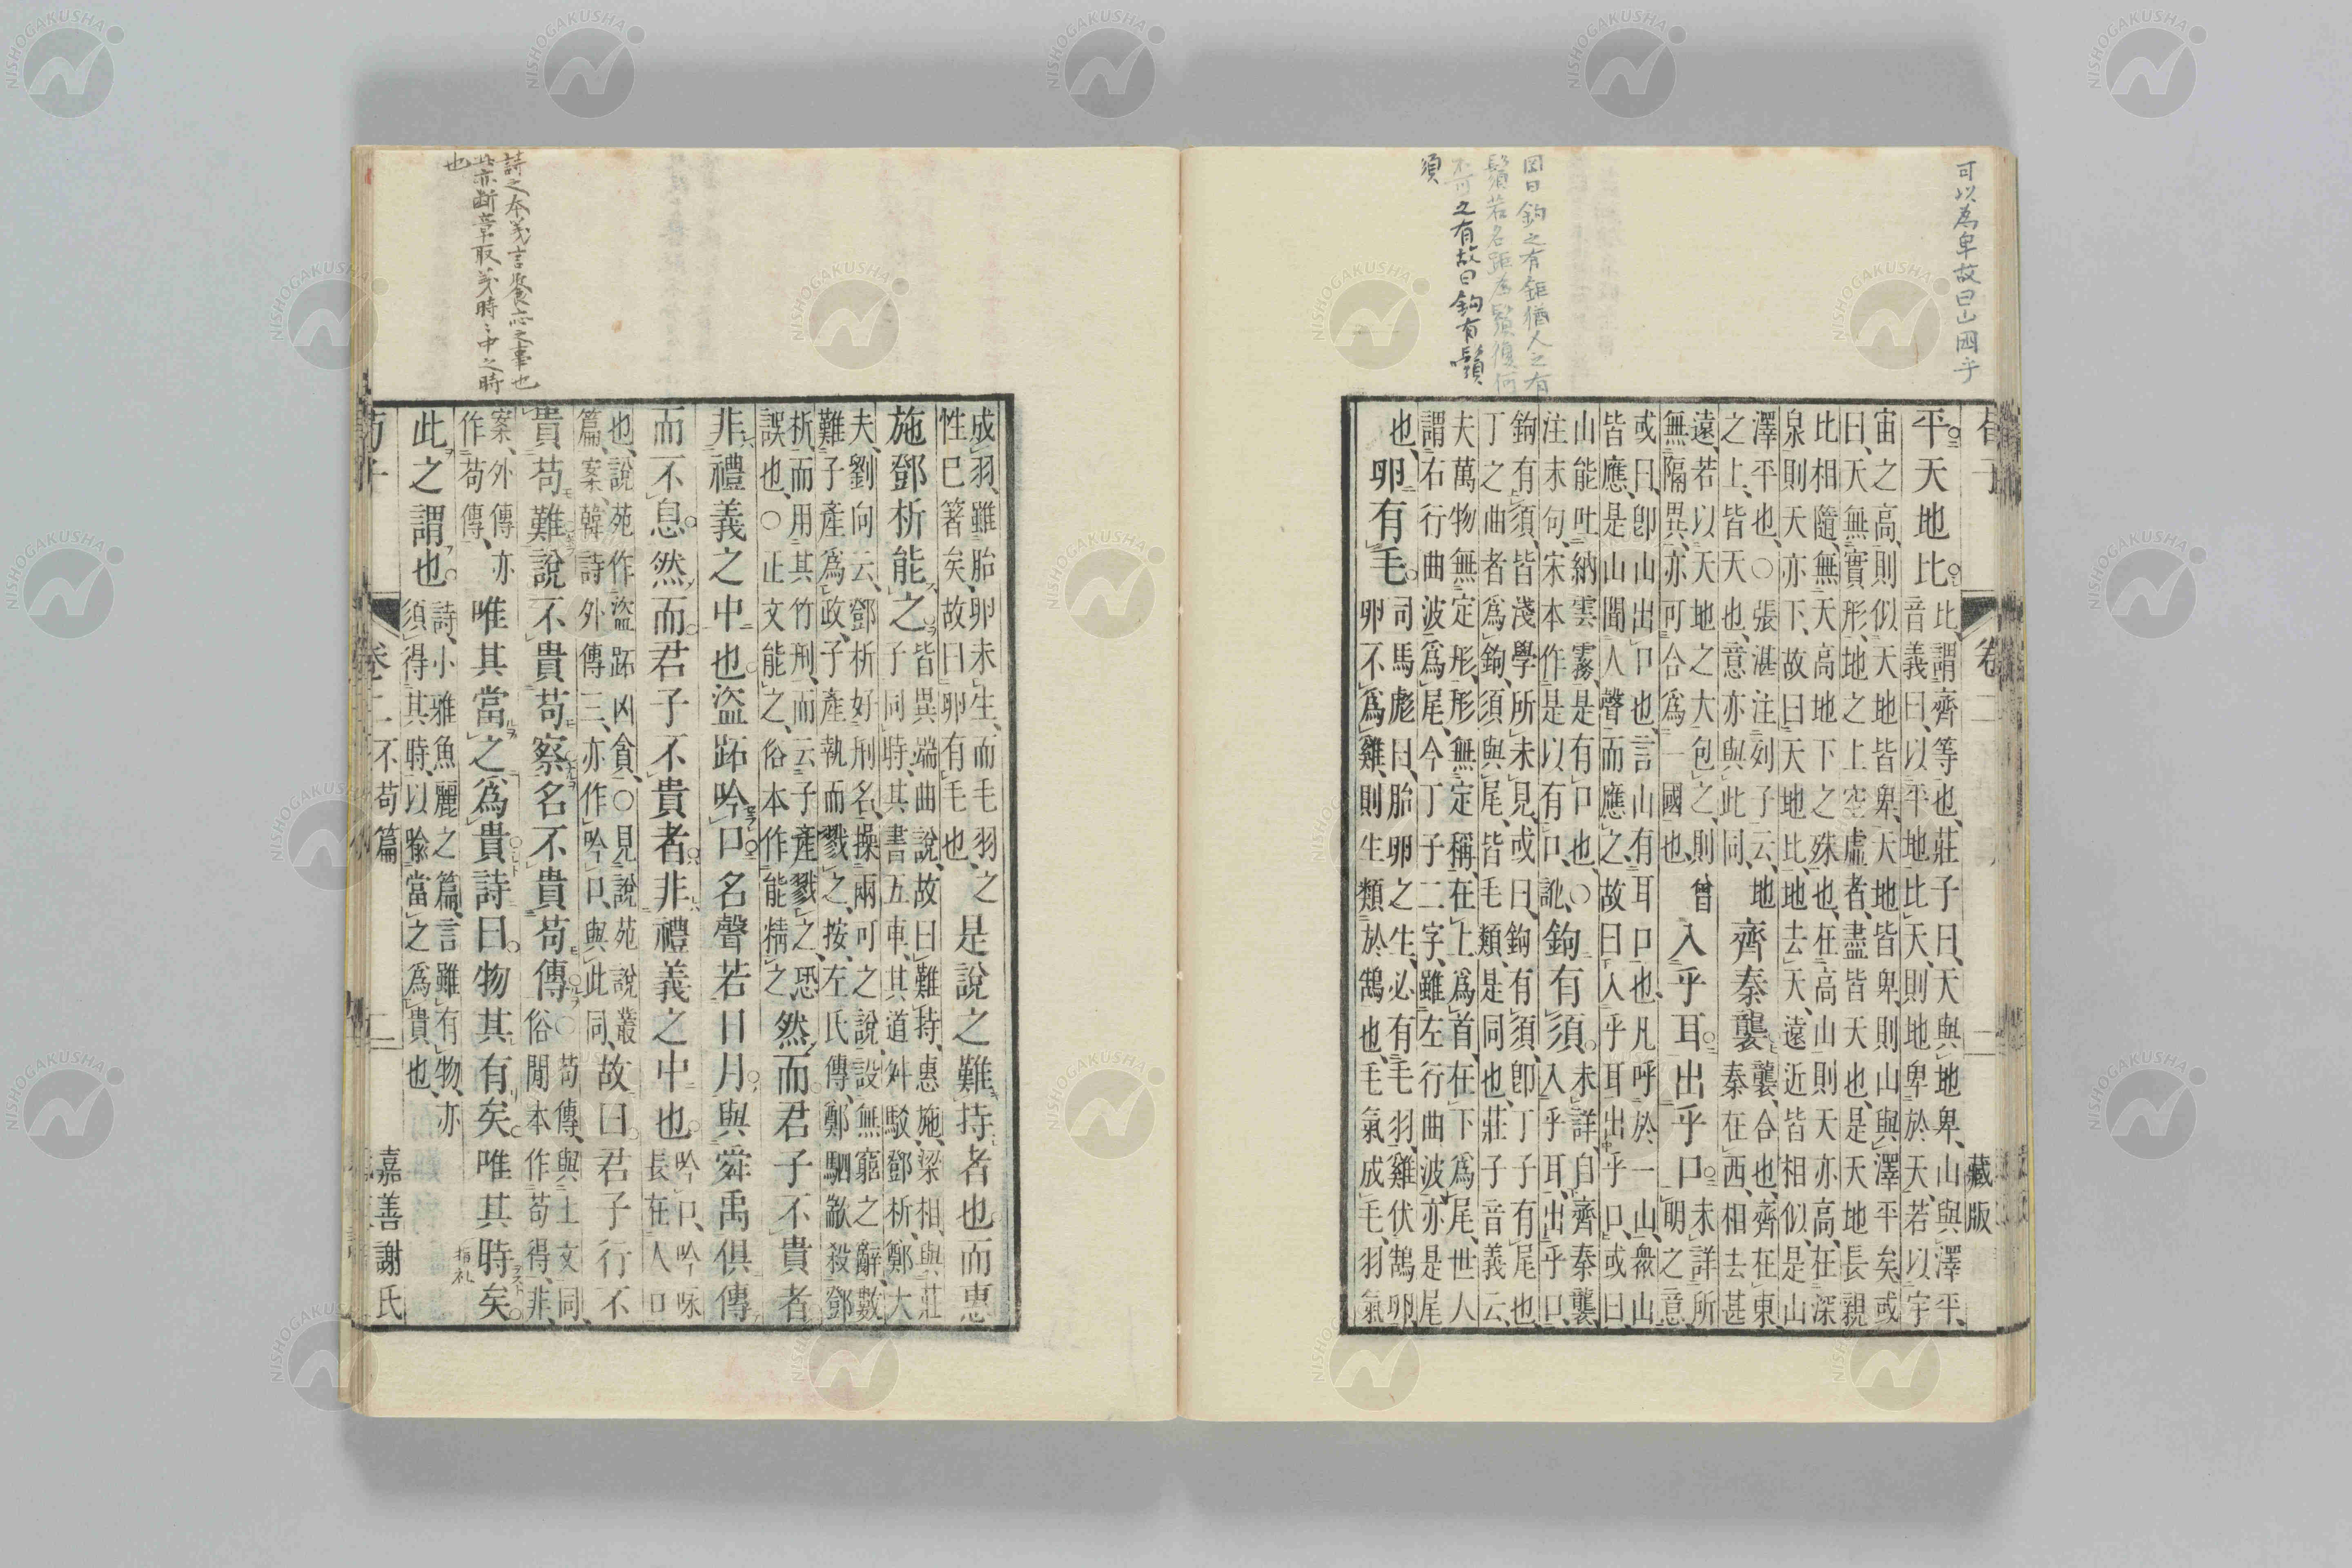 可以為卑故曰山
因曰鉤之有鉅猶人之有
鬚若名距為鬚復何
不可之有故曰鉤有鬚
須
荀子 卷二 二 藏版
平天地比
比謂齊等也莊子曰天與地卑山與澤平
音義曰以平地比天則地卑於天若以宇
宙之高則似天地皆卑天地皆卑則山與澤平矣或
曰天無實形地之上空虛者盡皆天也是天地長親
比相隨無天高地下之殊也在高山則天亦高在深
泉則天亦下故曰天地比地去天遠近皆相似是山
澤平也○張湛注列子云地
之上皆天也意亦與此同
齊秦襲
襲合也齊在東
秦在西相去甚
遠若以天地之大包之則曾
無隔異亦可合爲一國也
入乎耳出乎口
未詳所
明之意
或曰卽山出口也言山有耳口也凡呼於一山衆山
皆應是山聞人聲而應之故曰入乎耳出乎口或曰
山能吐納雲霧是有口也○
注末句宋本作是以有口訛
鉤有須
未詳自齊秦襲
入乎耳出乎口
鉤有須皆淺學所未見或曰鉤有須卽丁子有尾也
丁之曲者爲鉤須與尾皆毛類是同也莊子音義云
夫萬物無定形形無定稱在上爲首在下爲尾世人
謂右行曲波爲尾今丁子二字雖左行曲波亦是尾
也
卵有毛
司馬彪曰胎卵之生必有毛羽雞伏鵠卵
卵不爲雞則生類於鵠也毛氣成毛羽氣
詩之本義言饔
此亦斷章取義時〻中之時
也
成羽雖胎卵未生而毛羽之
性已箸矣故曰卵有毛也
是說之難持者也而惠
施鄧析能之
皆異端曲說故曰難持惠施梁相與莊
子同時其書五車其道舛駁鄧析鄭大
夫劉向云鄧析好刑名操兩可之說設無窮之辭數
難子產爲政子產執而戮之按左氏傳鄭駟歂殺鄧
析而用其竹刑而云子產戮之恐
誤也○正文能之俗本作能精之
然而君子不貴者
非禮義之中也盜跖吟口名聲若日月與舜禹俱傳
而不息然而君子不貴者非禮義之中也
吟口吟咏
長在人口
也說苑作盜跖凶貪○見說苑說叢
篇案韓詩外傳三亦作吟口與此同
故曰君子行不
貴苟難說不貴苟察名不貴苟傳
○苟傳與上文同
俗閒本作苟得非
案外傳亦
作苟傳
唯其當之爲貴詩曰物其有矣唯其時矣
此之謂也
詩小雅魚麗之篇言雖有物亦
須得其時以喻當之爲貴也
荀子 卷二 不苟篇 二 嘉善謝氏
NISHOGAKUSHA